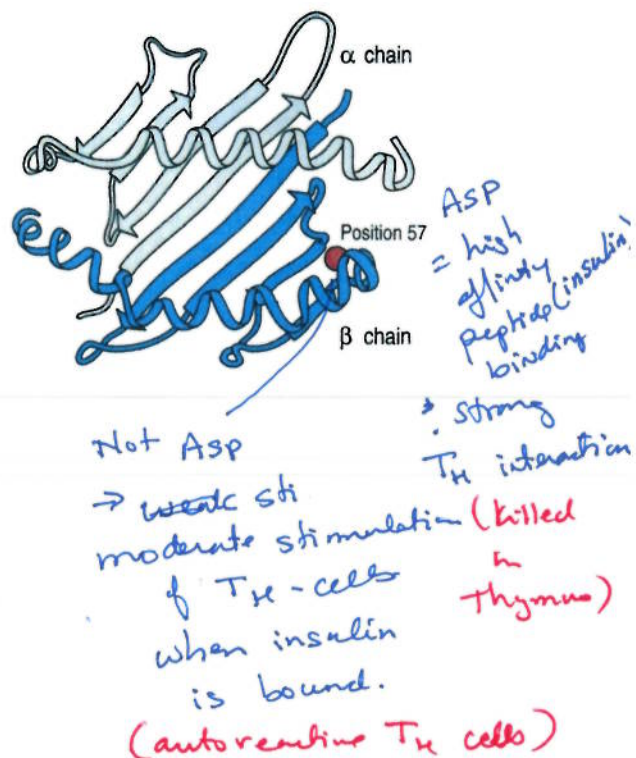 α chain
Position 57
β chain
ASP
= high
affinity
peptide (insulin)
binding
∴ strong
TH interaction
(killed
in
Thymus)
Not Asp
→ weak sti
moderate stimulation
of TH-cells
when insulin
is bound.
(autoreactive TH cells)